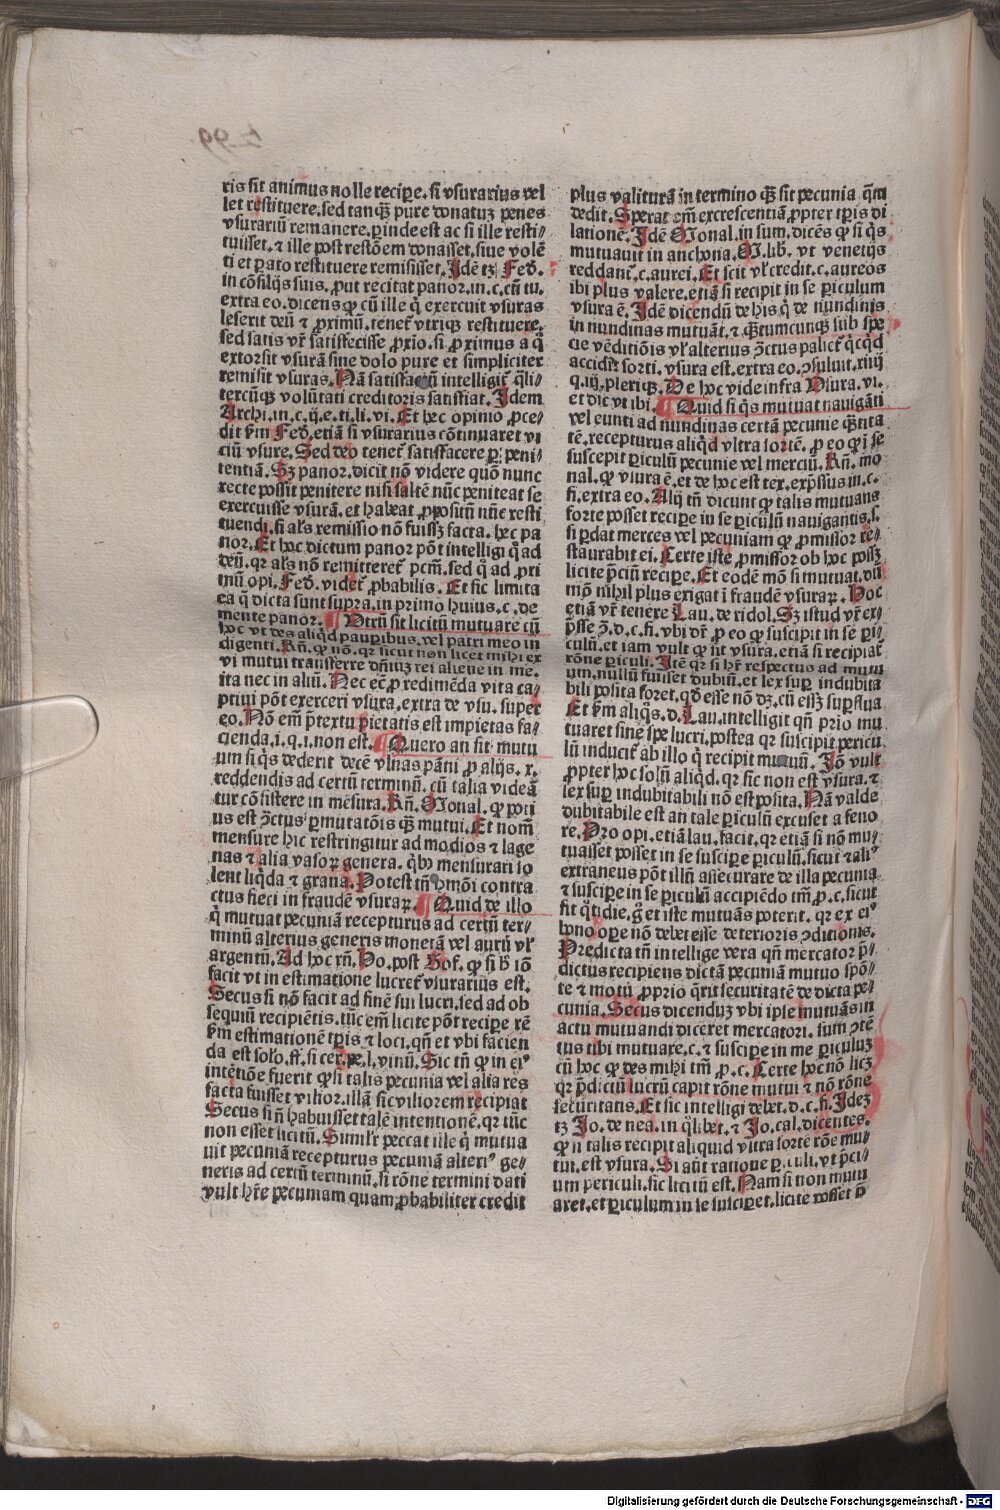 ris sit animus nolle recipe. si vsurarius vel
let restituere. sed tanq̃ pure donatuz penes
vsurariũ remanere. perinde est ac si ille resti⸗
tuisset. ⁊ ille post restõem donaisset. siue volẽ
ti et pato restituere remisisset. Idẽ tz Fed̃.
in cõsilijs suis. ꝓut recitat panor. in. c. cũ tu.
extra eo. dicens ꝙ cũ ille q̃ exercuit vsuras
leserit deũ ⁊ ꝓximũ. tenet̃ vtriqꝫ restituere.
sed satis vr̃ satisfecisse ꝓrio. si ꝓximus a q̃
extorsit vsurã sine dolo pure et simpliciter
remisit vsuras. Nã satisfactũ intelligit̃ q̃li⸗
tercũqꝫ volũtati creditoris satisfiat. Idem
Archi. in. c. ij. e. ti. li. vi. Et hec opinio ꝓce⸗
dit ẞm Fed̃. etiã si vsurarius cõtinuaret vi
ciũ vsure. Sed deo tenet̃ satisfacere ꝑ peni⸗
tentiã. Sꝫ panor. dicit nõ videre quõ nunc
recte possit penitere nisi saltẽ nũc peniteat se
exercuisse vsurã. et habeat ꝓpositũ nũc resti
tuendi. si als remissio nõ fuissꝫ facta. hec pa
nor. Et hoc dictum panor põt intelligi q̃ ad
deũ. qr als nõ remitteret̃ pcm̃. sed q̃ ad ꝓxi
mũ opi. Fed̃. videt̃ ꝓbabilis. Et sic limita
ea q̃ dicta sunt supra. in primo huius. c. de
mente panor. ¶ Vtrũ sit licitũ mutuare cũ
hoc vt des aliqd pauꝑibus. vel patri meo in
digenti. Rñ. ꝙ nõ. qr sicut non licet mihi ex
vi mutui transferre dñiuꝫ rei aliene in me.
ita nec in aliũ. Nec ec̃ ꝓ redimẽda vita ca⸗
ptiui põt exerceri vsura. extra de vsu. super
eo. Nõ em̃ ꝓtextu pietatis est impietas fa⸗
cienda. i. q. i. non est. ¶ Quero an sit mutu
um si q̃s dederit decẽ vlnas pãni ꝓ alijs. x.
reddendis ad certũ terminũ. cũ talia videã
tur cõsistere in mẽsura. Rñ. Monal. ꝙ poti
us est ꝯctus ꝑmutatõis q̃ꝫ mutui. Et nom̃
mensure hic restringitur ad modios ⁊ lage
nas ⁊ alia vasoꝝ genera. qbo mensurari so
lent liq̃da ⁊ grana. Potest tñ hmõi contra
ctus fieri in fraudẽ vsuraꝝ. ¶ Quid de illo
q̃ mutuat pecuniã recepturus ad certũ ter⸗
minũ alterius generis monetã vel aurũ vl̃
argentũ. Ad hoc rñ. Ho. post Gof. ꝙ si b̃ iõ
facit vt in estimatione lucret̃ vsurarius est.
Secus si nõ facit ad finẽ sui lucri. sed ad ob
sequiũ recipiẽtis. tũc em̃ licite põt recipe rẽ
ẞm estimationẽ tpis ⁊ loci. qñ et vbi facien
da est solo. ff. si cer. pe. l. vinũ. Sic tñ ꝙ in eiꝰ
intẽtiõe fuerit ꝙ si talis pecunia vel alia res
facta fuisset vilior. illã sic viliorem recipiat
Secus si ñ habuisset talẽ intentionẽ. qr tũc
non esset licitũ. Simil'r peccat ille q̃ mutua
uit pecuniã recepturus pecuniã alteriꝰ ge⸗
neris ad certũ terminũ. si rõne termini dati
vult hr̃e pecuniam quam ꝓbabiliter credit
plus valiturã in termino q̃ꝫ sit pecunia q̃m
dedit. Sperat em̃ excrescentiã ꝓpter tpis di
lationẽ. Idẽ Monal. in sum. dicẽs ꝙ si q̃s
mutuauit in anchona. M. lib. vt venetijs
reddant̃. c. aurei. Et scit vl̃ credit. c. aureos
ibi plus valere. etiã si recipit in se ꝑiculum
vsura ẽ. Idẽ dicendũ de his q̃ de nundinis
in nundinas mutuãt. ⁊ q̃ꝫtumcunqꝫ sub spe
cie vẽditiõis vl̃ alterius ꝯctus paliet̃ q̃cq̃d
accidit sorti. vsura est. extra eo. ꝯsuluit. xiiij
q. iij. pleriqꝫ. De hoc vide infra Vsura. vi.
et dic vt ibi. ¶ Quid si q̃s mutuat nauigãti
vel eunti ad nundinas certã pecunie q̃ꝫtita
tẽ. recepturus aliq̃d vltra sortẽ. ꝓ eo ꝙ ĩ se
suscepit ꝑiculũ pecunie vel merciũ. Rñ. mo
nal. ꝙ vsura ẽ. et de hoc est tex. exp̃ssus in. c.
fi. extra eo. Alij tñ dicunt ꝙ talis mutuans
forte posset recipe in se ꝑiculũ nauigantis. s.
si ꝑdat merces vel pecuniam ꝙ ꝓmissor re⸗
staurabit ei. Certe iste ꝓmissor ob hoc possꝫ
licite p̃ciũ recipe. Et eodẽ mõ si mutuat. dũ
mõ nihil plus exigat ĩ fraudẽ vsuraꝝ. Hoc
etiã vr̃ tenere Lau. de ridol. Sꝫ istud vr̃ ex⸗
p̃sse ꝯ. d. c. fi. vbi dr̃ ꝓ eo ꝙ suscipit in se ꝑi⸗
culũ. et iam vult ꝙ sit vsura. etiã si recipiat̃
rõne ꝑiculi. Itẽ qr si hr̃et respectus ad mutu
um. nullũ fuisset dubiũ. et lex suꝑ indubita
bili posita foret. qd̃ esse nõ dꝫ. cũ essꝫ suꝑflua
Et ẞm aliq̃s. d. Lau. intelligit qñ prio mu
tuaret sine spe lucri. postea qr suscipit pericu
lũ inducit̃ ab illo q̃ recipit mutuũ. Iõ vult
ꝓpter hoc solũ aliq̃d. qr sic non est vsura. ⁊
lex suꝑ indubitabili nõ est posita. Nã valde
dubitabile est an tale ꝑiculũ excuset a feno
re. Pro opi. etiã lau. facit. qr etiã si nõ mu⸗
tuasset posset in se suscipe ꝑiculũ. sicut ⁊ aliꝰ
extraneus põt illũ assecurare de illa pecunia
⁊ suscipe in se ꝑiculũ accipiẽdo tm̃ ꝓ. c. sicut
fit q̃tidie. g̃ et iste mutuãs poterit. qr ex eiꝰ
bono oꝑe nõ debet esse deterioris ꝯditionis.
Predicta tñ intellige vera qñ mercator p̃⸗
dictus recipiens dictã pecuniã mutuo spõ⸗
te ⁊ motu ꝓprio q̃rit securitatẽ de dicta pe⸗
cunia. Secus dicenduꝫ vbi ipse mutuãs in
actu mutuandi diceret mercatori. sum ꝯtẽ
tus tibi mutuare. c. ⁊ suscipe in me ꝑiculuꝫ
cũ hoc ꝙ des mihi tm̃ ꝓ. c. Certe hoc nõ licꝫ
qr p̃dictũ lucrũ capit rõne mutui ⁊ nõ rõne
securitatis. Et sic intelligi debet. d. c. fi. Ideꝫ
tꝫ Jo. de nea. in q̃libet. ⁊ Jo. cal. dicentes.
ꝙ si talis recipit aliquid vltra sortẽ rõe mu⸗
tui. est vsura. Si aũt ratione ꝑiculi. vt p̃ci⸗
um periculi. sic licitũ est. Nam si non mutu
aret. et ꝑiculum in se susciꝑet. licite posset p̃
Digitalisierung gefördert durch die Deutsche Forschungsgemeinschaft - DFG